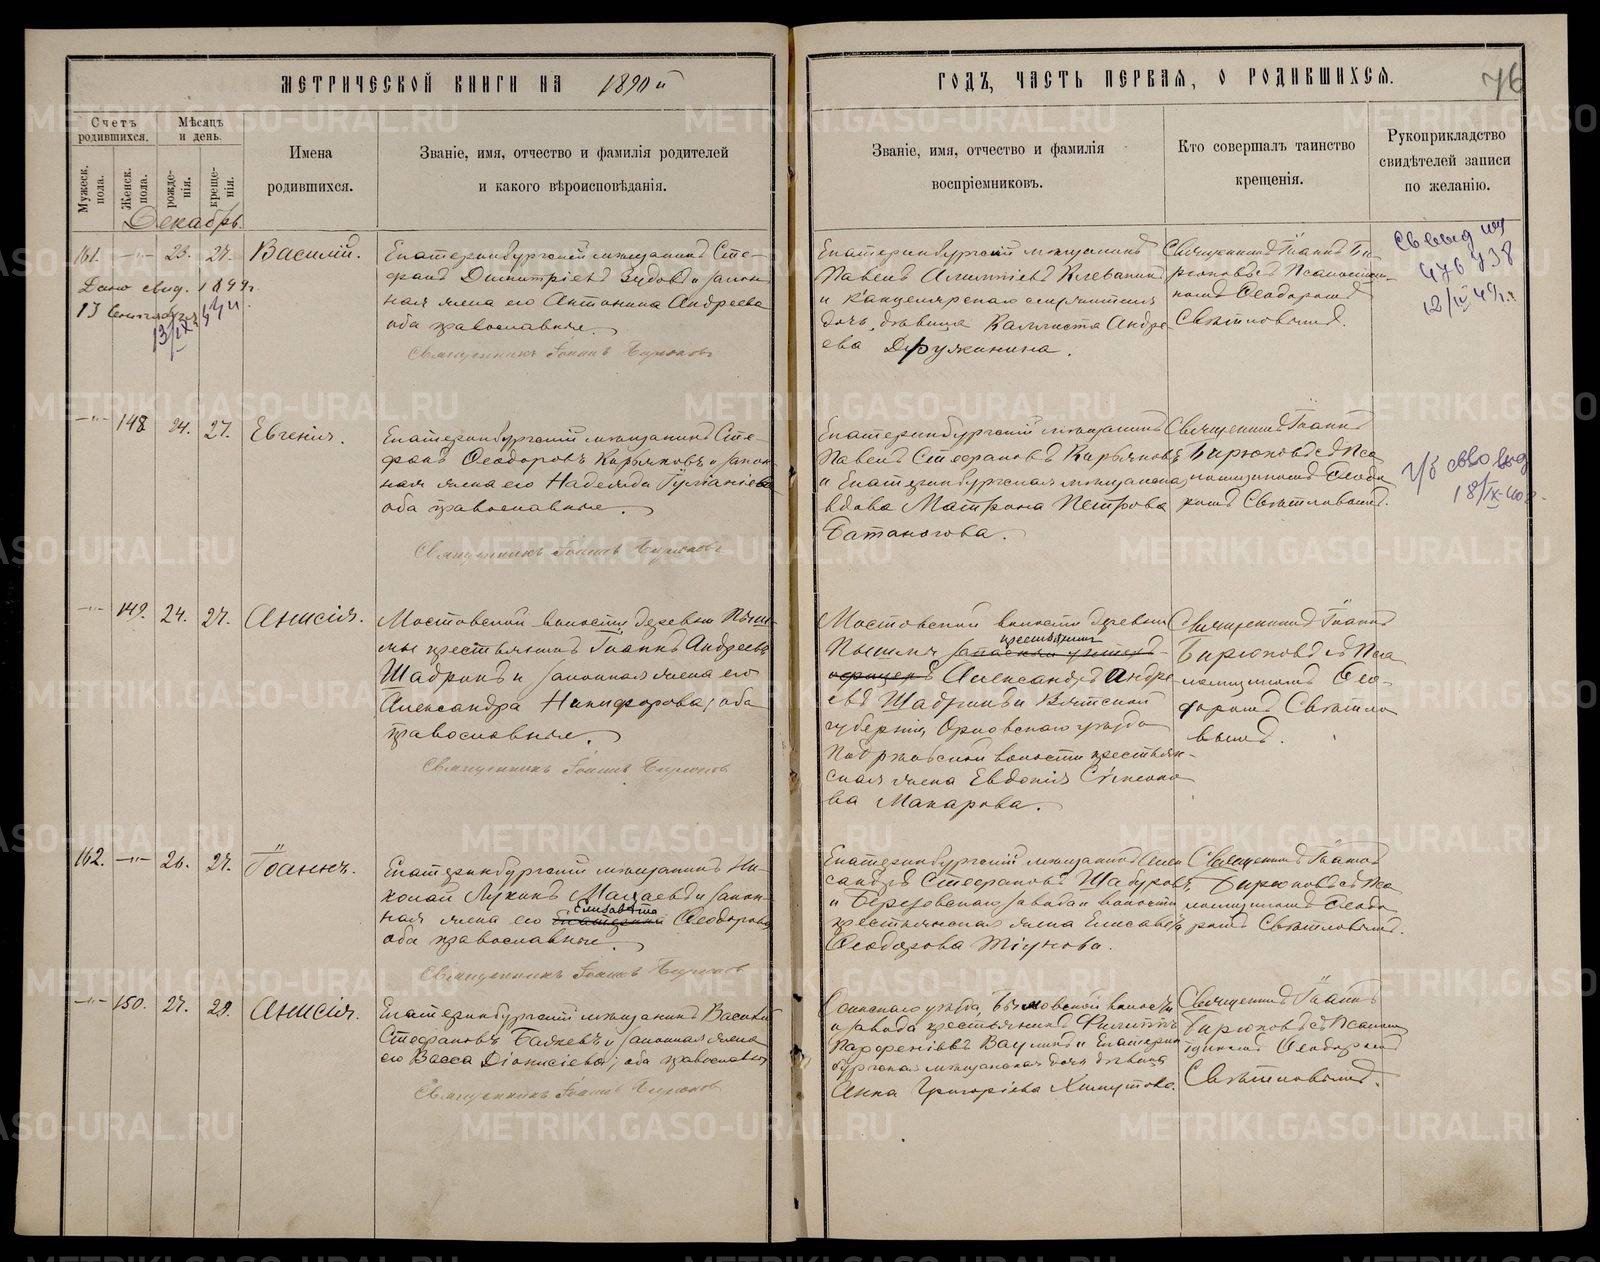 МЕТРИЧЕСКОЙ КНИГИ НА 1890 й
ГОДЪ, ЧАСТЬ ПЕРВАЯ, О РОДИВШИХСЯ.
76
Счетъ родившихся.
Мужеск. пола.
Женск. пола.
Мѣсяцъ и день.
рожде-
нія.
креще-
нія.
Имена
родившихся.
Званіе, имя, отчество и фамилія родителей
и какого вѣроисповѣданія.
Званіе, имя, отчество и фамилія
воспріемниковъ.
Кто совершалъ таинство
крещенія.
Рукоприкладство
свидѣтелей записи
по желанію.
Декабрь.
161. —"— 23. 27. Василій.
Дано свид. 1899 г.
13
Екатеринбургскій мѣщанинъ Сте-
фанъ Димитріевъ Зудовъ и закон-
ная жена его Антонина Андреева
оба православные.
Священникъ Іоаннъ Бирюковъ
Екатеринбургскій мѣщанинъ
Павелъ
и Канцелярскаго служителя
дочь, дѣвица Каллиста Андре
ева Дружинина.
Священникъ Іоаннъ Би-
рюковъ съ Псаломщи-
комъ Ѳеодоромъ
Свѣтловымъ.
—"— 148 24. 27. Евгенія.
Екатеринбургскій мѣщанинъ Сте-
фанъ Ѳеодоровъ Кирьяковъ и закон-
ная жена его Надежда
оба православные.
Священникъ Іоаннъ Бирюковъ
Екатеринбургскій мѣщанинъ
Павелъ Стефановъ Кирьяковъ
и Екатеринбургская мѣщанская
вдова Матрона Петрова
Батаногова.
Священникъ Іоаннъ
Бирюковъ съ Пса
ломщикомъ Ѳеодо
ромъ Свѣтловымъ.
—"— 149. 24. 27. Анисія.
Мостовской волости деревни Пыш-
мы крестьянинъ Іоаннъ Андреевъ
Шадринъ и законная жена его
Александра Никифорова, оба
православные.
Священникъ Іоаннъ Бирюковъ
Мостовской волости деревни
Пышмы крестьянинъ
Александръ Андре
евъ Шадринъ и Вятской
губерніи Орловскаго уѣзда
волости крестьян-
ская жена Евдокія
ва Макарова.
Священникъ Іоаннъ
Бирюковъ съ Пса
ломщикомъ Ѳео-
доромъ Свѣтло
вымъ.
162. —"— 26. 27. Іоаннъ.
Екатеринбургскій мѣщанинъ Ни-
колай Лукинъ и закон-
ная жена его Елисавета Ѳеодорова
оба православные.
Священникъ Іоаннъ Бирюковъ
Екатеринбургскій мѣщанинъ Алек
сандръ Стефановъ Шабуровъ
и Березовскаго завода и волости
крестьянская жена Елисавета
Ѳеодорова Тіунова.
Священникъ Іоаннъ
Бирюковъ съ Пса
ломщикомъ Ѳеодо
ромъ Свѣтловымъ.
—"— 150. 27. 29. Анисія.
Екатеринбургскій мѣщанинъ Василій
Стефановъ и законная жена
его Васса Діонисіева, оба православные
Священникъ Іоаннъ Бирюковъ
уѣзда, волости
и завода крестьянинъ Филиппъ
Парфеніевъ Ваулинъ и Екатерин
бургская мѣщанская дочь дѣвица
Анна Григоріева
Священникъ Іоаннъ
Бирюковъ съ Псалом
щикомъ Ѳеодоромъ
Свѣтловымъ.